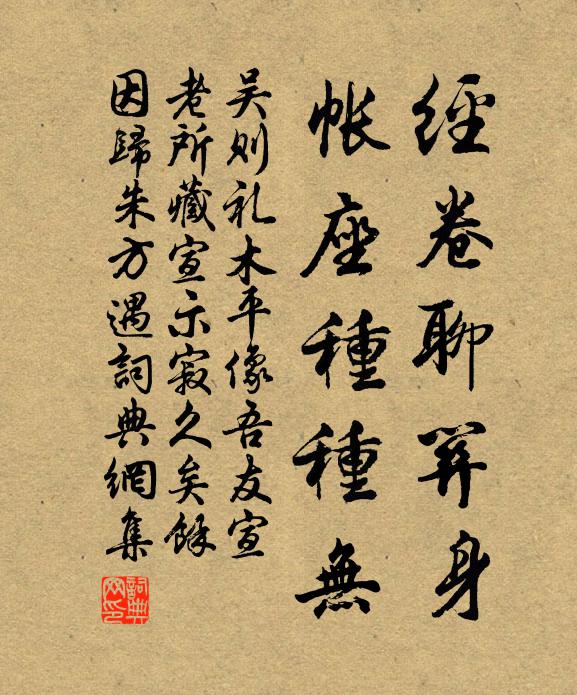 經卷聊笄身
帳座種種無
吴则礼木平像吾友宣
老所藏宣示寂久矣餘
因歸朱方遇詞典網集
詞典网印